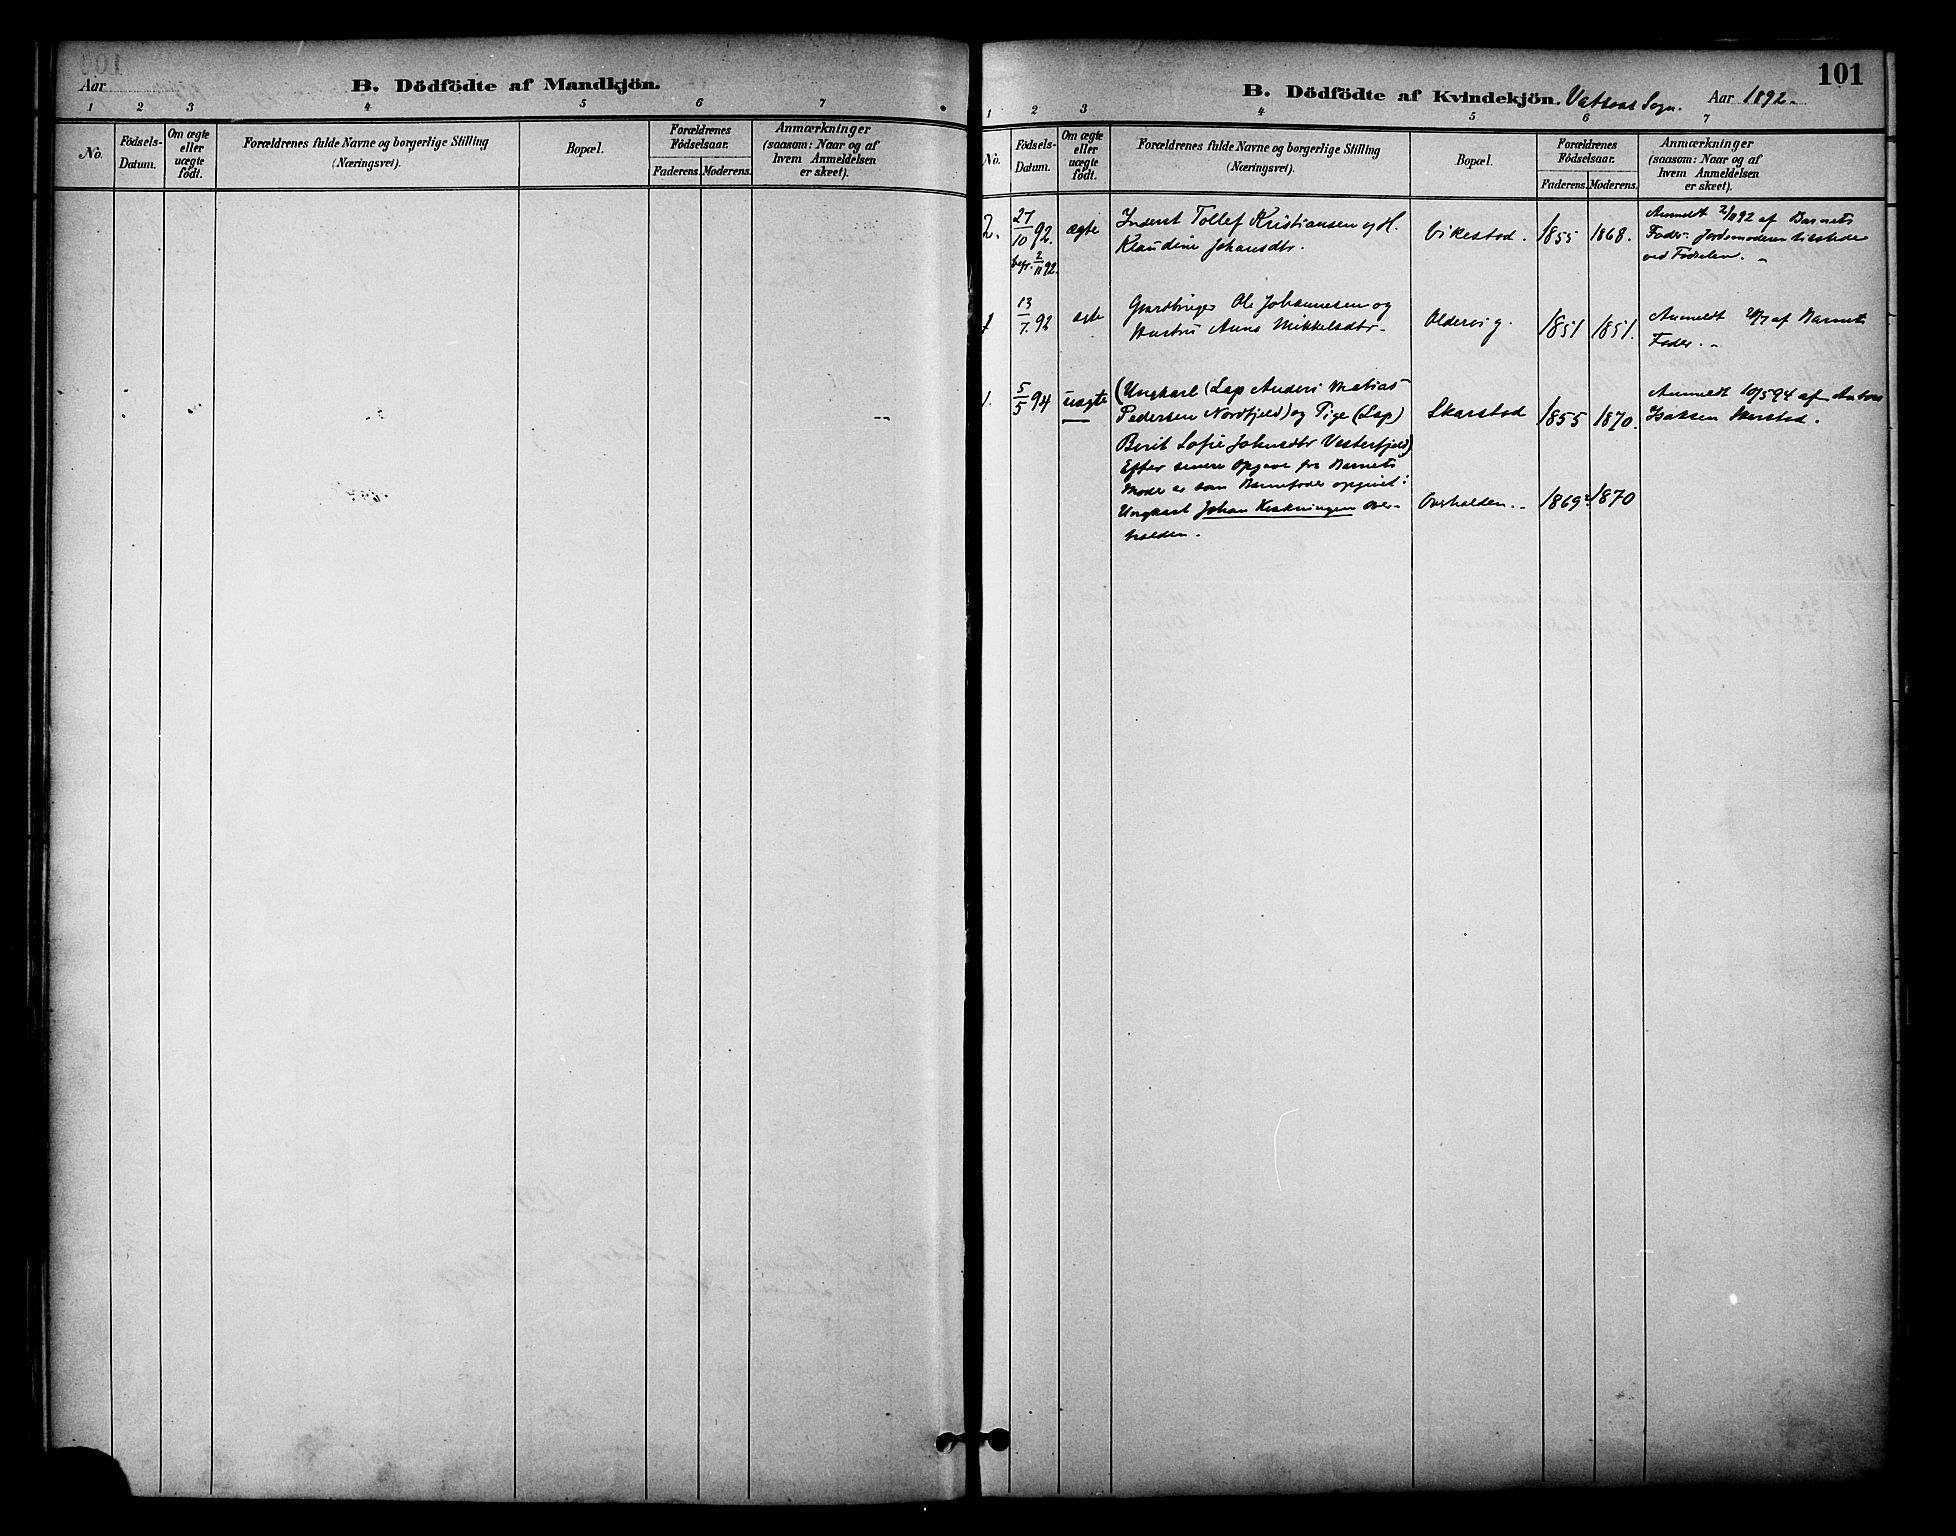 Aar
B. Dödfödte af Mandkjön.
1 2 3 4 5 6 7
No.
Födsels-
Datum.
Om ægte
eller
uægte
født.
Forældrenes fulde Navne og borgerlige Stilling
(Næringsvei).
Bopæl.
Forældrenes
Födselsaar.
Faderens. Moderens.
Anmærkninger
(saasom: Naar og af
hvem Anmeldelsen
er skeet).
101
B. Dödfödte af Kvindekjön. Sogn. Aar 1892.
1 2 3 4 5 6 7
No.
Födsels-
Datum.
Om ægte
eller
uægte
födt.
Forældrenes fulde Navne og borgerlige Stilling
(Næringsvei).
Bopæl.
Forældrenes
Födselsaar.
Faderens. Moderens.
Anmærkninger
(saasom: Naar og af
hvem Anmeldelsen
er skeet).
2. 27/10 92. ægte Inderst Tollef Kristiansen og H. Vikestad. 1855 1868. Anmeldt 2/11 92 af Barnets
begr. 2/11 92. Klaudine Johansdtr. Fader. Jordmoderen tilstede
ved Fødselen.
13/7 92 ægte Gaardbruger Ole Johannesen og Oldervig. 1851 1851. Anmeldt af Barnets
Hustru Anna Mikkelsdtr. Fader.
1. 5/5 94 uægte (Ungkarl (Lap Anders Matias Skarstad 1855 1870. Anmeldt 10/5 94 af Anton
Pedersen Nordfjeld) og Pige (Lap) Isaksen Skarstad.
Berit Sofie Johnsdtr Vesterfjeld)
Efter senere Opgave fra Barnets
Moder er som Barnefader opgivet:
Ungkarl Johan Over- Overhalden. 1869? 1870
halden.